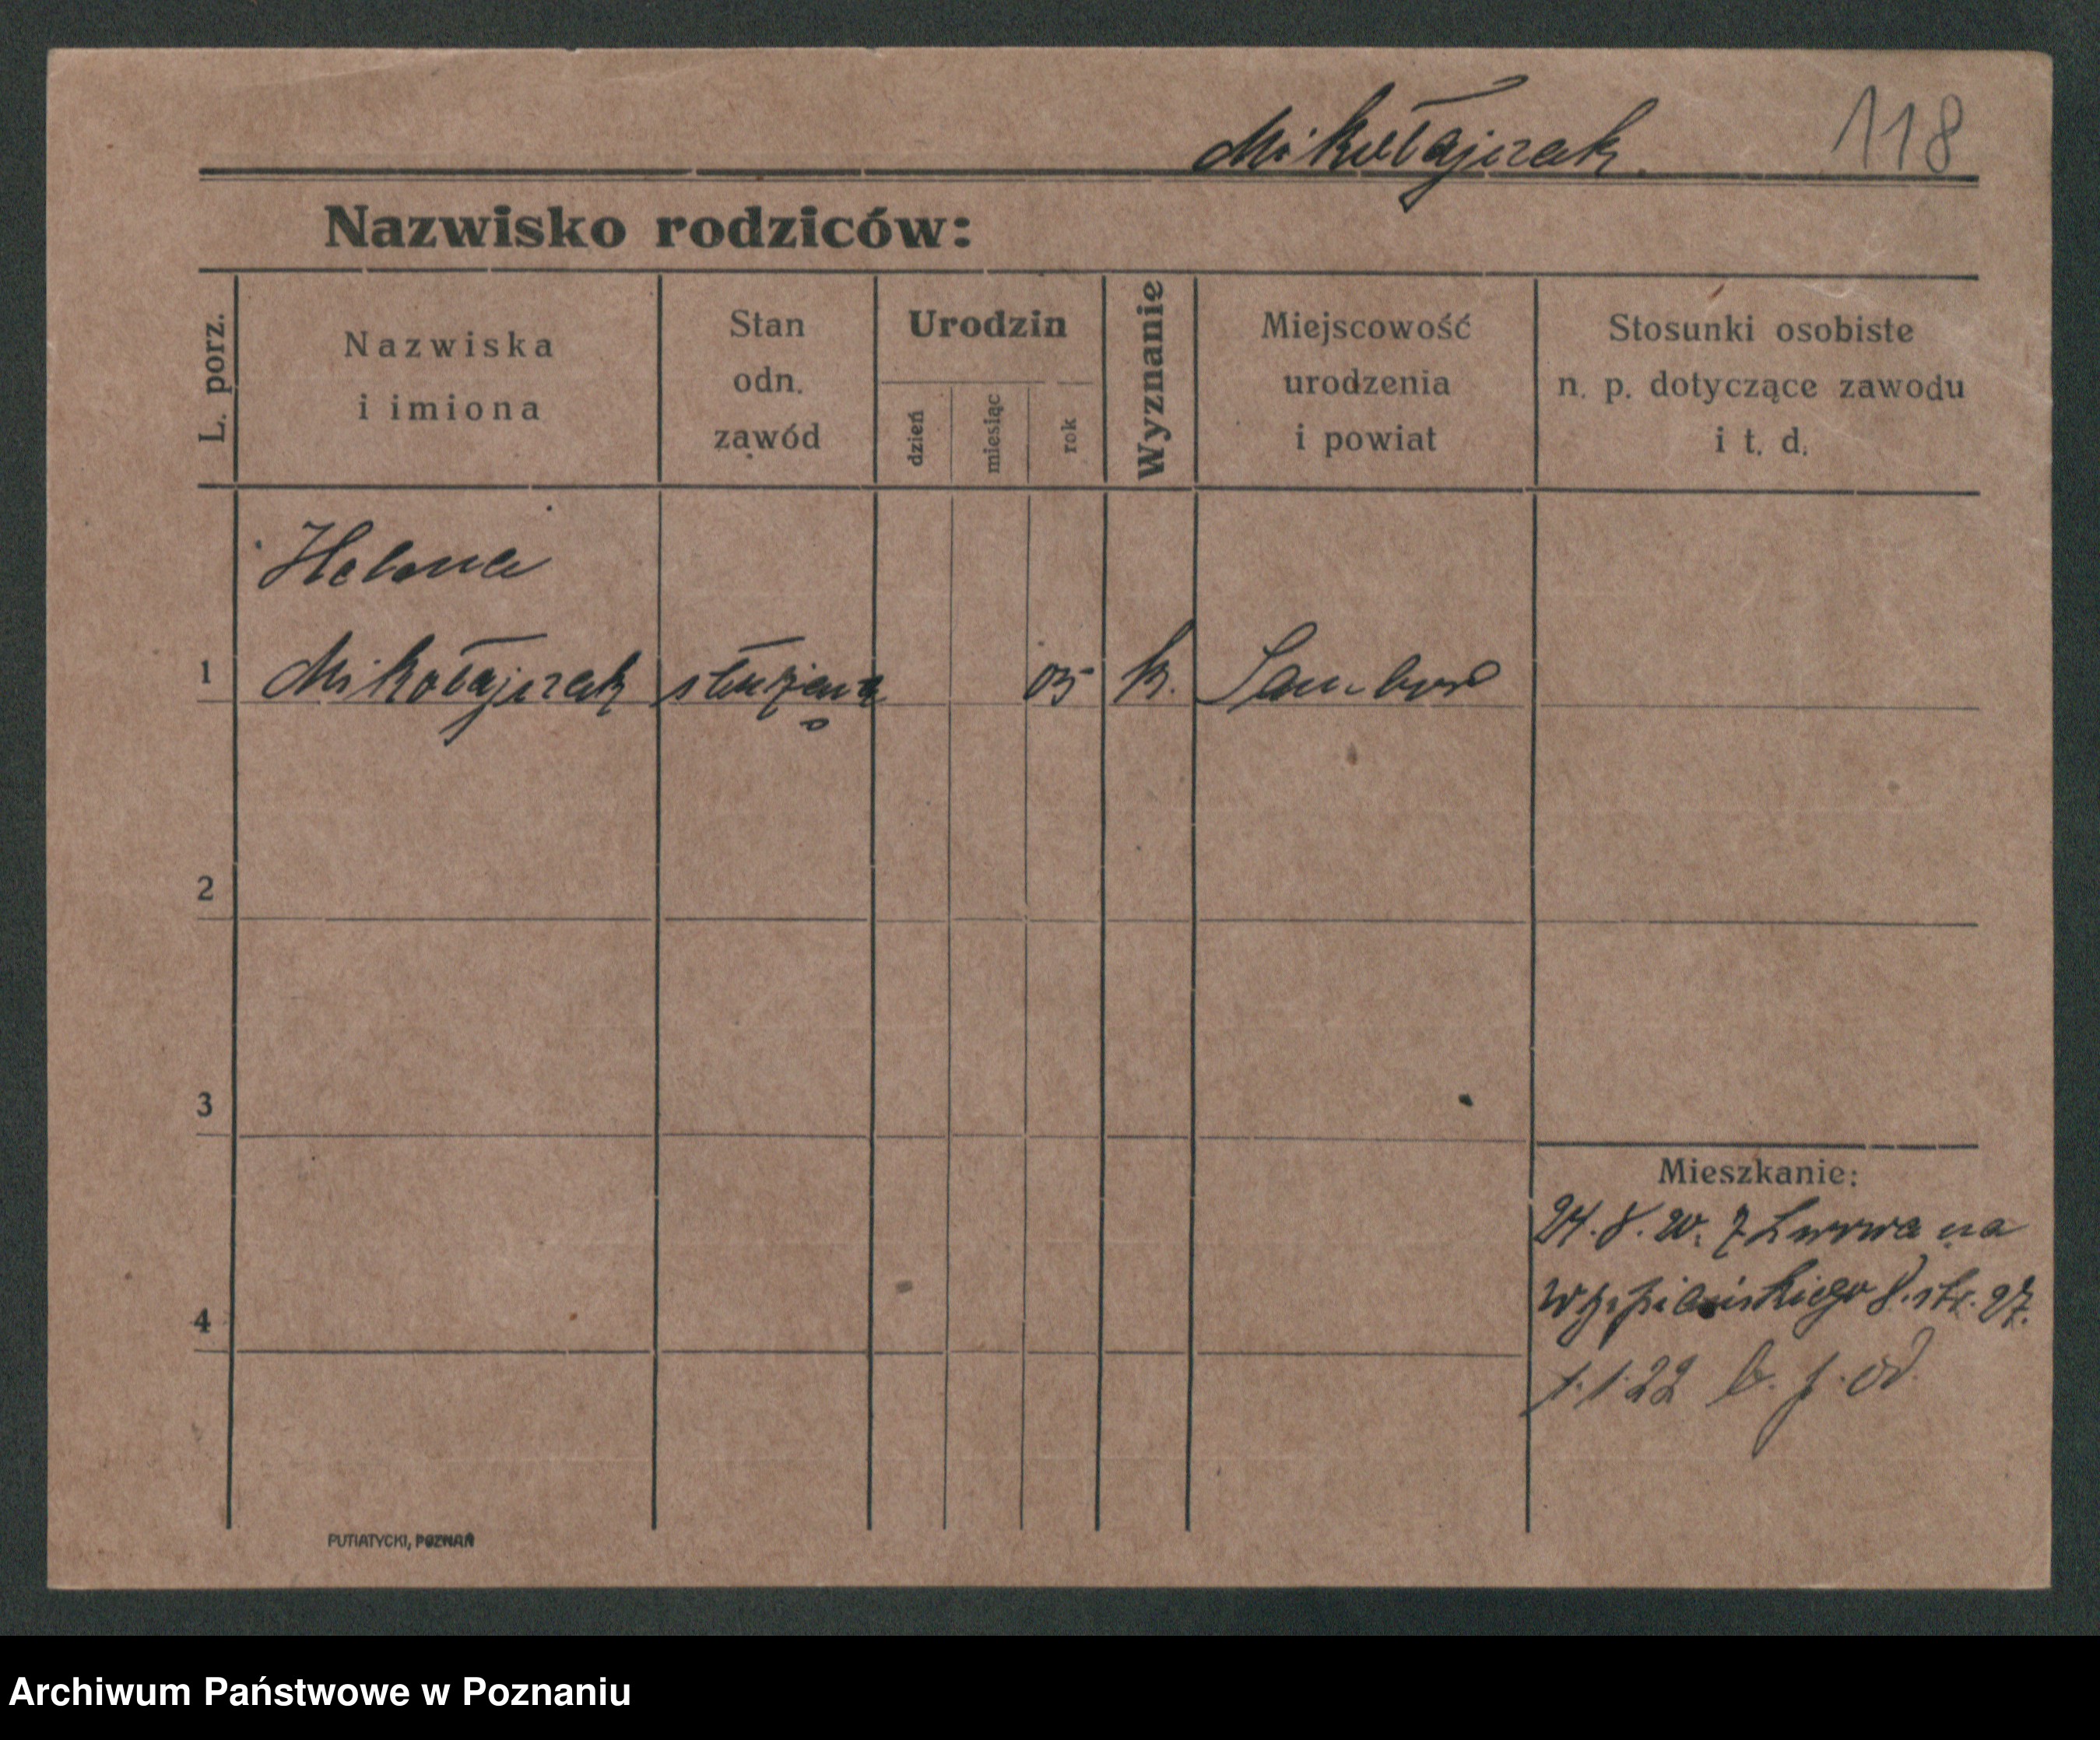 Mikołajczak 118
Nazwisko rodziców:
L. porz.
Nazwiska
i imiona
Stan
odn.
zawód
Urodzin
dzień
miesiąc
rok
Wyznanie
Miejscowość
urodzenia
i powiat
Stosunki osobiste
n. p. dotyczące zawodu
i t. d.
Helena
1 Mikołajczak służąca 05 k. Sambor
2
3
4
Mieszkanie:
24. 8. 20. z Lwowa na
Wyspiańskiego 8. str. 27.
1. 1. 22 b. z. od
PUTIATYCKI, POZNAŃ
Archiwum Państwowe w Poznaniu